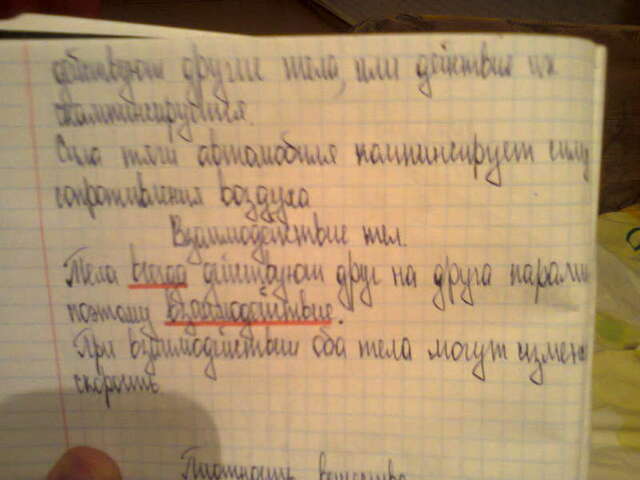 действуют другие тела, или действия их
кампинсируются.
Сила тяги автомобиля кампинсирует силу
сопротивления воздуха
Взаимодействие тел.
Тела всегда действуют друг на друга парами
поэтому взаимодействие.
При взаимодействии оба тела могут измен
скорость
Плотность вещества